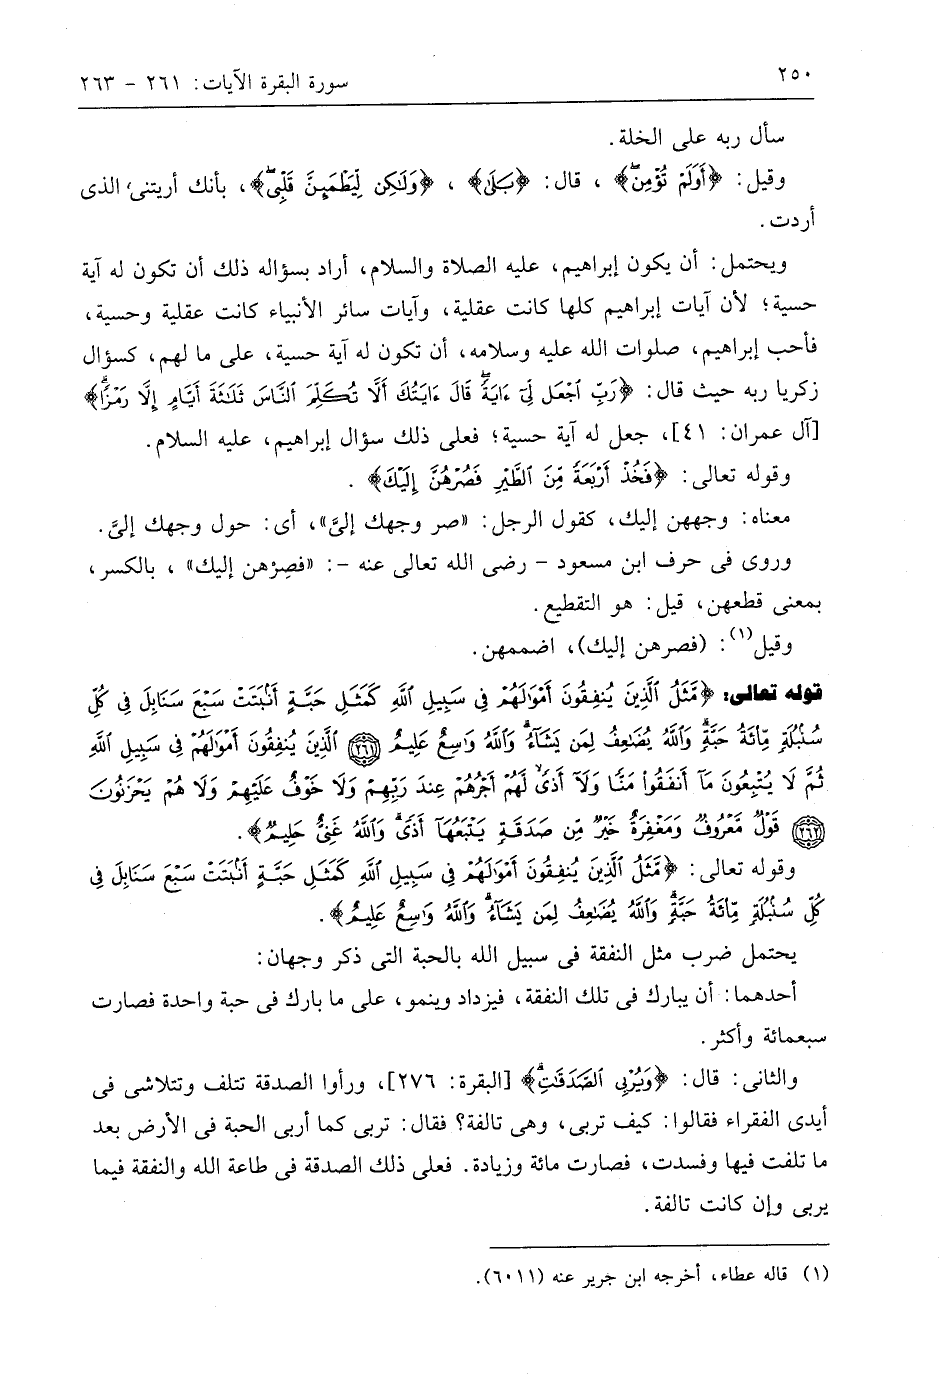 ٢٥٠
سورة البقرة الآيات: ٢٦١ - ٢٦٣
سأل ربه على الخلة.
وقيل: ﴿أَوَلَمْ تُؤْمِنۖ﴾ ، قال: ﴿بَلَىٰ﴾ ، ﴿وَلَٰكِن لِّيَطْمَئِنَّ قَلْبِيۖ﴾، بأنك أريتنى الذى
أردت.
ويحتمل: أن يكون إبراهيم، عليه الصلاة والسلام، أراد بسؤاله ذلك أن تكون له آية
حسية؛ لأن آيات إبراهيم كلها كانت عقلية، وآيات سائر الأنبياء كانت عقلية وحسية،
فأحب إبراهيم، صلوات الله عليه وسلامه، أن تكون له آية حسية، على ما لهم، كسؤال
زكريا ربه حيث قال: ﴿رَبِّ ٱجْعَل لِّىٓ ءَايَةًۖ قَالَ ءَايَتُكَ أَلَّا تُكَلِّمَ ٱلنَّاسَ ثَلَٰثَةَ أَيَّامٍ إِلَّا رَمْزًاۗ﴾
[آل عمران: ٤١]، جعل له آية حسية؛ فعلى ذلك سؤال إبراهيم، عليه السلام.
وقوله تعالى: ﴿فَخُذْ أَرْبَعَةً مِّنَ ٱلطَّيْرِ فَصُرْهُنَّ إِلَيْكَ﴾ .
معناه: وجههن إليك، كقول الرجل: «صر وجهك إلىَّ»، أى: حول وجهك إلىَّ.
وروى فى حرف ابن مسعود - رضى الله تعالى عنه -: «فصِرْهن إليك» ، بالكسر،
بمعنى قطعهن، قيل: هو التقطيع.
وقيل(١): (فصرهن إليك)، اضممهن.
قوله تعالى: ﴿مَّثَلُ ٱلَّذِينَ يُنفِقُونَ أَمْوَٰلَهُمْ فِى سَبِيلِ ٱللَّهِ كَمَثَلِ حَبَّةٍ أَنۢبَتَتْ سَبْعَ سَنَابِلَ فِى كُلِّ
سُنۢبُلَةٍ مِّا۟ئَةُ حَبَّةٍۗ وَٱللَّهُ يُضَٰعِفُ لِمَن يَشَآءُۗ وَٱللَّهُ وَٰسِعٌ عَلِيمٌ ﴿٢٦١﴾ ٱلَّذِينَ يُنفِقُونَ أَمْوَٰلَهُمْ فِى سَبِيلِ ٱللَّهِ
ثُمَّ لَا يُتْبِعُونَ مَآ أَنفَقُوا۟ مَنًّا وَلَآ أَذًىۙ لَّهُمْ أَجْرُهُمْ عِندَ رَبِّهِمْ وَلَا خَوْفٌ عَلَيْهِمْ وَلَا هُمْ يَحْزَنُونَ
﴿٢٦٢﴾ قَوْلٌ مَّعْرُوفٌ وَمَغْفِرَةٌ خَيْرٌ مِّن صَدَقَةٍ يَتْبَعُهَآ أَذًىۗ وَٱللَّهُ غَنِىٌّ حَلِيمٌ﴾.
وقوله تعالى: ﴿مَّثَلُ ٱلَّذِينَ يُنفِقُونَ أَمْوَٰلَهُمْ فِى سَبِيلِ ٱللَّهِ كَمَثَلِ حَبَّةٍ أَنۢبَتَتْ سَبْعَ سَنَابِلَ فِى
كُلِّ سُنۢبُلَةٍ مِّا۟ئَةُ حَبَّةٍۗ وَٱللَّهُ يُضَٰعِفُ لِمَن يَشَآءُۗ وَٱللَّهُ وَٰسِعٌ عَلِيمٌ﴾.
يحتمل ضرب مثل النفقة فى سبيل الله بالحبة التى ذكر وجهان:
أحدهما: أن يبارك فى تلك النفقة، فيزداد وينمو، على ما بارك فى حبة واحدة فصارت
سبعمائة وأكثر.
والثانى: قال: ﴿وَيُرْبِى ٱلصَّدَقَٰتِۗ﴾ [البقرة: ٢٧٦]، ورأوا الصدقة تتلف وتتلاشى فى
أيدى الفقراء فقالوا: كيف تربى، وهى تالفة؟ فقال: تربى كما أربى الحبة فى الأرض بعد
ما تلفت فيها وفسدت، فصارت مائة وزيادة. فعلى ذلك الصدقة فى طاعة الله والنفقة فيما
يربى وإن كانت تالفة.
(١) قاله عطاء، أخرجه ابن جرير عنه (٦٠١١).